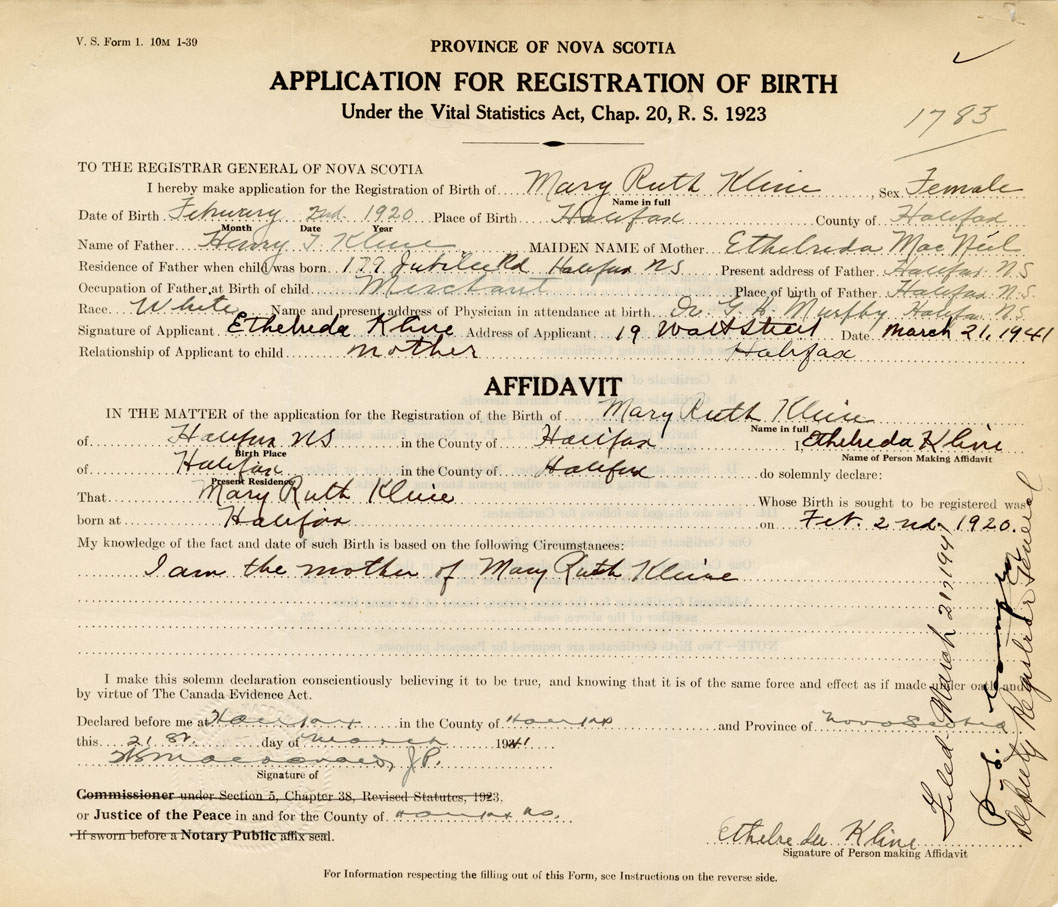 V. S. Form 1. 10M 1-39
PROVINCE OF NOVA SCOTIA
APPLICATION FOR REGISTRATION OF BIRTH
Under the Vital Statistics Act, Chap. 20, R. S. 1923
1783
TO THE REGISTRAR GENERAL OF NOVA SCOTIA
I hereby make application for the Registration of Birth of Mary Ruth Kline, Sex Female
Name in full
Date of Birth Febuary 2nd 1920 Place of Birth Halifax County of Halifax
Month Date Year
Name of Father Henry J Kline MAIDEN NAME of Mother Ethelreda MacNeil
Residence of Father when child was born 179 Jubilee Rd Halifax NS Present address of Father Halifax N.S
Occupation of Father at Birth of child Merchant Place of birth of Father Halifax N.S.
Race White Name and present address of Physician in attendance at birth Dr. G. H. Murphy Halifax N.S.
Signature of Applicant Ethelreda Kline Address of Applicant 19 Watt Street Date March 21, 1941
Relationship of Applicant to child mother Halifax
AFFIDAVIT
IN THE MATTER of the application for the Registration of the Birth of Mary Ruth Kline
Name in full
of Halifax NS in the County of Halifax I, Ethelreda Kline
Birth Place Name of Person Making Affidavit
of Halifax in the County of Halifax do solemnly declare:
Present Residence
That Mary Ruth Kline Whose Birth is sought to be registered was
born at Halifax on Feb. 2nd, 1920.
My knowledge of the fact and date of such Birth is based on the following Circumstances:
I am the mother of Mary Ruth Kline
NOTE—Two Birth Certificates are required for Passport purposes.
I make this solemn declaration conscientiously believing it to be true, and knowing that it is of the same force and effect as if made under oath and
by virtue of The Canada Evidence Act.
Declared before me at Halifax in the County of Halifax and Province of Nova Scotia
this 21 st. day of March 1941
J.P.
Signature of
Commissioner under Section 5, Chapter 38, Revised Statutes, 1923.
or Justice of the Peace in and for the County of Halifax NS.
If sworn before a Notary Public affix seal.
Ethelreda Kline
Signature of Person making Affidavit
For Information respecting the filling out of this Form, see Instructions on the reverse side.
Filed March 21, 1941
Deputy Registrar General